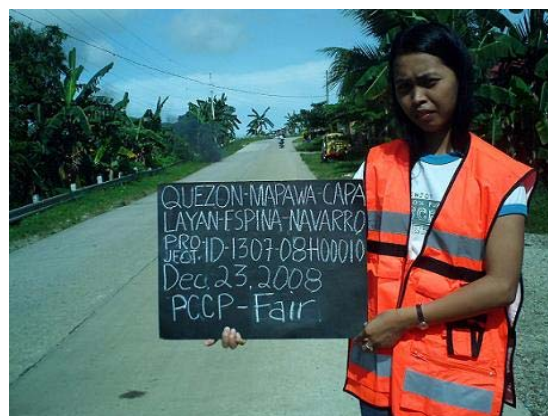 QUEZON-MAPAWA-CAPA
LAYAN-ESPINA-NAVARRO
PRO
JECT. ID-1307-08H00010
Dec. 23, 2008
PCCP-Fair